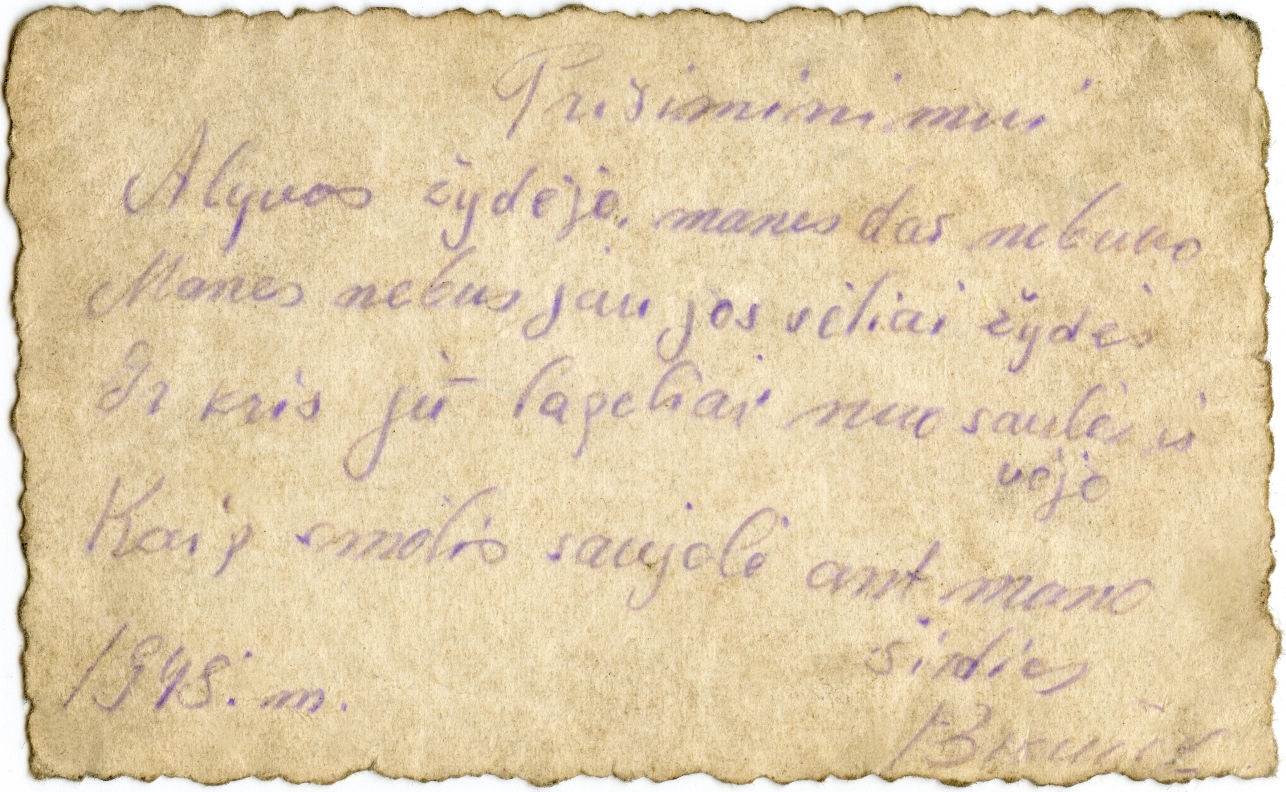 Prisiminimui
Alyvos žydėjo, manęs dar nebuvo
Manęs nebus jau jos vėliai žydės
Ir kris jų lapeliai nuo saulės ir
vėjo
Kaip smėlio saujelė ant mano
širdies
194 m.